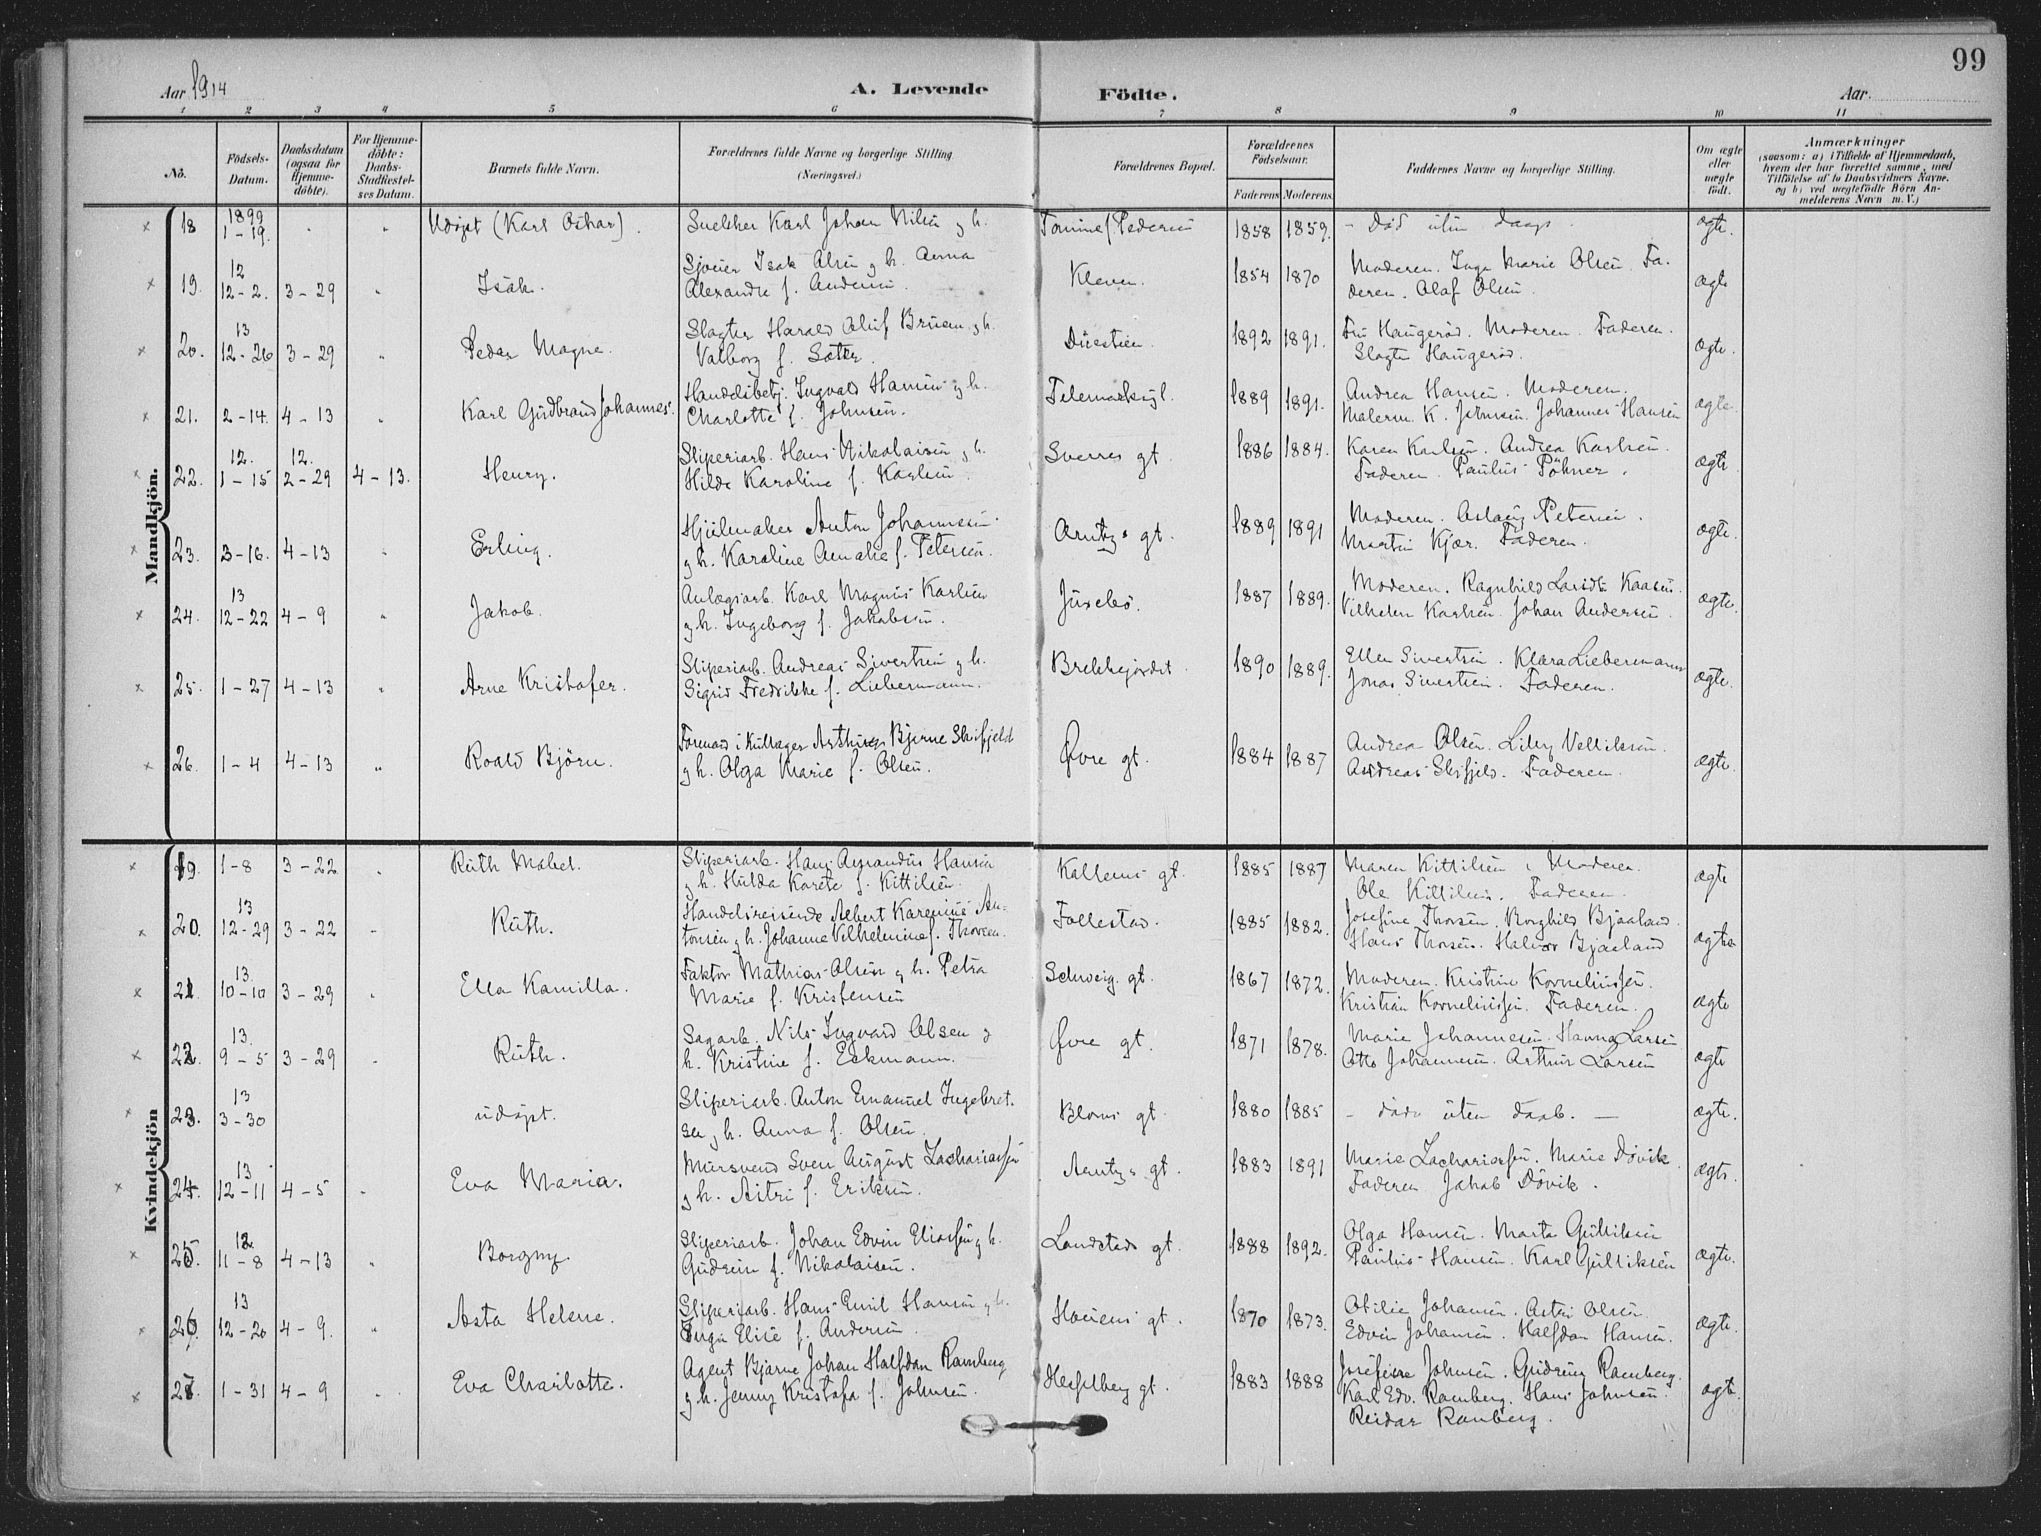 99
Aar 1914
A. Levende Födte.
Aar
1 2 3 4 5 6 7 8 9 10 11
No.
Födsels-Datum.
Daabsdatum (ogsaa for Hjemme-döbte).
For Hjemme-döbte: Daabs-Stadfæstel-ses Datum.
Barnets fulde Navn.
Forældrenes fulde Navne og borgerlige Stilling (Næringsvei.)
Forældrenes Bopæl.
Forældrenes Födselsaar.
Faderens Moderens
Faddernes Navne og borgerlige Stilling.
Om ægte eller uægte født.
Anmærkninger
(saasom: a) i Tilfælde af Hjemmedaab, hvem der har forrettet samme, med Tilföielse af to Daabsvidners Navne, og b) ved uægtefödte Börn An-melderens Navn m.V.)
Mandkjön.
18 1899 1-19. Udøpt (Karl Oskar). Snekker Karl Johan Nilsen g h. Tomine f Pedersen 1858 1859. - Død uten daap. ægte.
19. 12 12-2. 3-29 Isak. Sjøeier Isak Olsen g h. Anna
Alexandra f. Andersen. Kleven. 1854 1870 Moderen. Inga Marie Olsen. Fa-
deren. Olaf Olsen. ægte
20. 13 12-26 3-29 Peder Magne. Slagter Harald Oluf Bruem g h.
Valborg f. Sæter. Duestien. 1892 1891. Fru Haugerød. Moderen. Faderen.
Slagter Haugerød. ægte.
21. 2-14. 4-13 Karl Gudbrand Johannes. Handelsbetj. Ingvald Hansen g h.
Charlotte f. Johnsen. Telemarksgt. 1889 1891. Andrea Hansen. Moderen.
Malerm. K. Johnsen. Johannes Hansen ægte.
22. 12. 1-15 12. 2-29 4-13. Henry. Sliperiarb. Hans Nikolaisen g h.
Hilda Karoline f. Karlsen. Sverres gt. 1886 1884. Karen Karlsen. Andrea Karlsen.
Faderen. Paulus Pöhner. ægte
23. 3-16. 4-13 Erling. Hjulmaker Anton Johannesen
g h. Karoline Amalie f. Petersen. Arntz s gt. 1889 1891 Moderen. Aslaug Petersen.
Martin Kjær. Faderen. ægte.
24. 13 12-22 4-9 Jakob. Anlægsarb. Karl Magnus Karlsen
g h. Ingeborg f. Jakobsen. Juxebö. 1887 1889. Moderen. Ragnhild Larsdt. Kaasen.
Vilhelm Karlsen. Johan Andersen. ægte.
25. 1-27 4-13 Arne Kristofer. Sliperiarb. Andreas Sivertsen g h.
Sigrid Fredrikke f. Liebermann. Brekkejordet 1890 1889. Ellen Sivertsen. Klara Liebermann
Jonas Sivertsen. Faderen. ægte.
26. 1-4 4-13 Roald Björn. Formand i Kullager Arthur Bjerne Skifjeld
g h. Olga Marie f. Olsen. Øvre gt. 1884 1887 Andrea Olsen. Lilly Vetliksen.
Andreas Skifjeld. Faderen. ægte.
Kvindekjön
19. 1-8 3-22 Ruth Mabel. Sliperiarb. Hans Amandus Hansen
g h. Hulda Karete f. Kittilsen. Kallems gt. 1885 1887 Maren Kittilsen. Moderen.
Ole Kittilsen. Faderen. ægte
20. 13 12-29 3-22 Ruth. Handelsreisende Albert Karenius An-
tonsen g h. Johanne Vilhelmine f. Thorsen. Follestad. 1885 1882. Josefine Thorsen. Borghild Bjaaland.
Hans Thorsen. Halvor Bjaaland ægte
21 13. 10-10 3-29 Ella Kamilla. Faktor Mathias Olsen g h. Petra
Marie f. Kristensen Schweig. gt. 1867 1872. Moderen. Kristine Korneliussen.
Kristian Korneliussen. Faderen. ægte
22. 13. 9-5 3-29 Ruth. Sagarb. Nils Ingvard Olsen g
h. Kristine f. Eckmann. Øvre gt. 1871 1878. Marie Johannesen. Hanna Larsen
Otto Johannesen. Arthur Larsen ægte
23. 13 3-30 udøpt. Sliperiarb. Anton Emanuel Ingebret-
sen g h. Anna f. Olsen. Bloms gt. 1880 1885 - døde uten daab. - ægte.
24. 13 12-11 4-5 Eva Maria. Mursvend Sven August Zachariassen
g h. Astri f. Eriksen. Arntz s gt. 1883 1891 Marie Zachariassen. Marie Dövik
Faderen Jakob Dövik. ægte.
25. 12. 11-8 4-13 Borgny. Sliperiarb. Johan Edvin Eliassen g h.
Gudrun f. Nikolaisen. Landstads gt. 1888 1892. Olga Hansen. Marta Gulliksen
Paulus Hansen. Karl Gulliksen ægte.
26. 13 12-20 4-9. Asta Helene. Sliperiarb. Hans Emil Hansen g h.
Inga Elise f. Andersen. Houens gt. 1870 1873. Otilie Johansen. Astri Olsen.
Edvin Johansen. Halfdan Hansen. ægte.
27. 1-31 4-9 Eva Charlotte. Agent Bjarne Johan Halfdan Ramberg
g h. Jenny Kristofa f. Johnsen. Hesselberg gt. 1883 1888 Josefine Johnsen. Gudrun Ramberg.
Karl Edv. Ramberg. Hans Johnsen.
Reidar Ramberg. ægte.